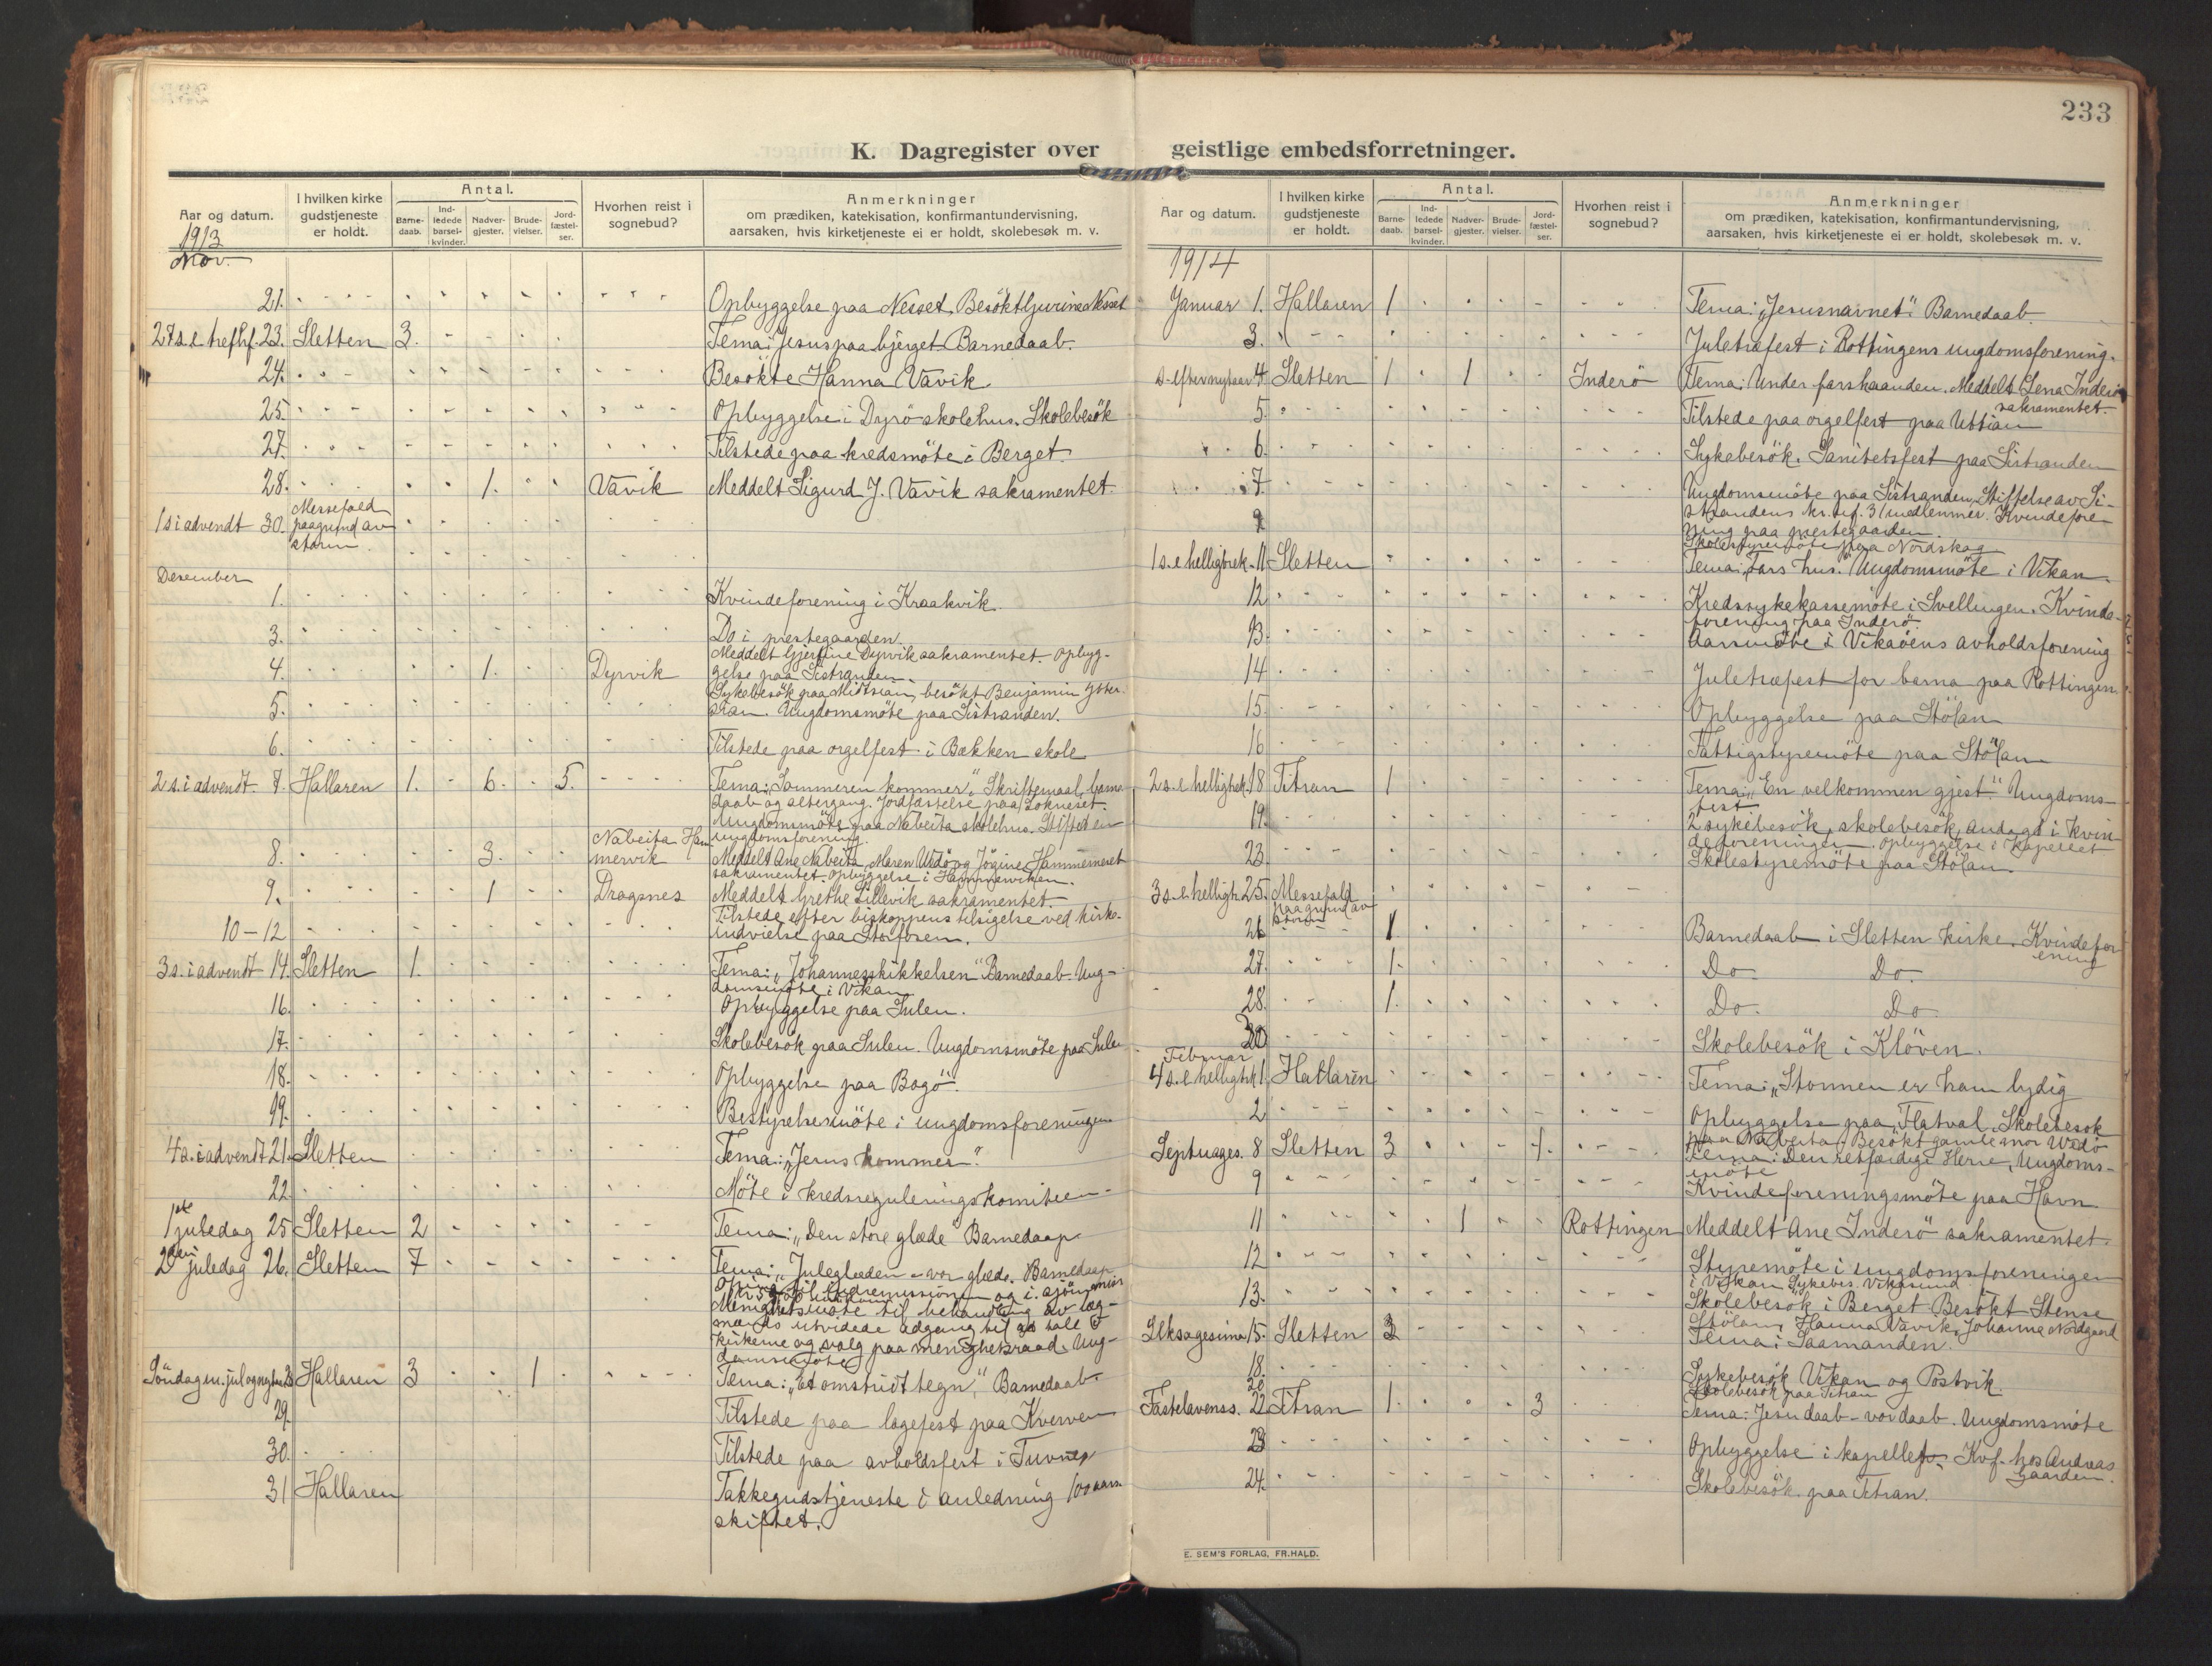 233
K. Dagregister over geistlige embedsforretninger.
Aar og datum. I hvilken kirke gudstjeneste er holdt. Antal. Barnedaab. Indledede barselkvinder. Nadvergjester. Brudevielser. Jordfæstelser. Hvorhen reist i sognebud? Anmerkninger om prædiken, katekisation, konfirmantundervisning, aarsaken, hvis kirketjeneste ei er holdt, skolebesøk m. v.
1913
Nov.
21. Opbyggelse paa Nesset. Besökt Nesset
23. Sletten 3. Tema: Jesus paa bjerget. Barnedaab.
24. Besökte Hanna Vavik
25. Opbyggelse i Dyrö skolehus. Skolebesök
27. Tilstede paa kredsmöte i Berget.
28. 1. Vavik Meddelt Sigurd J. Vavik sakramentet.
1 s i advendt 30. Messefald
paagrund av
storm.
Desember
1. Kvindeforening i Kraakvik.
3. Do i prestegaarden.
4. 1. Dyrvik Meddelt Dyrvik sakramentet. Opbyg-
gelse paa Sistranden.
5. Sykebesök paa besökt Benjamin
Ungdomsmöte paa Sistranden.
6. Tilstede paa orgelfest i Bækken skole
2 s. i advendt. 7. Hallaren 1. 6. 5. Tema: "Sommeren kommer". Skriftemaal, barne
daab og altergang. Jordfæstelse paa
Ungdomsmöte paa Nabeita skolehus. Stiftet en
ungdomsforening.
8. 3. Nabeita Ham
mervik Meddelt Ane Nabeita, Maren Uddö og Jögine Hammerneset
sakramentet. Opbyggelse i Hammerviken.
9. 1 Dragsnes Meddelt Grethe Lillevik sakramentet.
10-12 Tilstede efter biskoppens tilsigelse ved kirke-
indvielse paa Storfosen.
3 s. i advendt 14. Sletten 1. Tema: "Johannesskikkelsen" Barnedaab. Ung-
domsmöte i Vikan
16. Opbyggelse paa Sulen.
17. Skolebesök paa Sulen. Ungdomsmöte paa Sulen
18. Opbyggelse paa Bogö.
19. Bestyrelsesmöte i ungdomsforeningen
4 s. i advendt 21. Sletten Tema: "Jesus kommer".
22. Möte i kredsreguleringskomiteen
1ste juledag 25 Sletten 2 Tema: "Den store glæde" Barnedaap
2den juledag 26. Sletten 7 Tema: "Juleglæden - vor glæde. Barnedaap
Ofring til indremissionen og
Menighetsmöte til behandling av læg-
mænds utvidede adgang til at tale i
kirkerne og valg paa menighetsraad. Ung-
domsmöte
Söndag m. jul og nytaar 28 Hallaren 3 1 Tema: "Et omstridt tegn," Barnedaab.
29. Tilstede paa lagefest paa Kverven
30. Tilstede paa avholdsfest i Tuvnes
31 Hallaren Takkegudstjeneste i anledning 100 aars
skiftet.
1914
Januar 1. Hallaren 1 Tema: "Jesusnavnet". Barnedaab
3. Juletræfest i Rottingens ungdomsforening.
s. efter nytaar 4. Sletten 1 1 Inderö Tema: Under farskaanden. Meddelt Lena Inderö
sakramentet.
5. Tilstede paa orgelfest paa Uttian
6. Sykebesök. Sanitetsfest paa Sistranden
7. Ungdomsmöte paa Sistranden. Stiftelse av Si-
strandens kr. u.f. 31 medlemmer. Kvindefore
ning paa prestegaarden
9 Skolestyremöte paa Nordskag
1 s. e helligtrek. 11 Sletten Tema: Fars hus. Ungdomsmöte i Vikan.
12 Kredssykekassemöte i Svellingen. Kvinde-
forening paa Inderö.
13. Aarsmöte i Vikaöens avholdsforening
14 Juletræfest for barna paa Rottingen
15. Opbyggelse paa Stölan
16 Fattigstyremöte paa Stölan
2 s. e helligtrek. 18 Titran 1 Tema: "En velkommen gjest". Ungdoms-
fest
19. 2 sykebesök, skolebesök, andagt i kvin-
deforeningen. Opbyggelse i kapellet
23 Skolestyremöte paa Stölan.
3 s. e helligtr. 25. Messefald
paa grund av
storm
26 1 Barnedaab i Sletten kirke. Kvindefor
ening
27. 1. Do Do
28. 1. Do. Do
30 Skolebesök i Klöven.
Februar
4 s. e helligtrk 1. Hallaren Tema: "Stormen er ham lydig
2 Opbyggelse paa Flatval. Skolebesok
paa Nabeita. Besökt gamle mor Uddö
Septuages. 8 Sletten 3 1. Tema: Den retfærdige Herre, Ungdoms-
möte
9 Kvindeforeningsmöte paa Havn
11 1 Rottingen Meddelt Ane Inderö sakramentet.
12 Styremöte i ungdomsforeningen
i Vikan. Sykebes. Vikasund
13. Skolebesök i Berget. Besökt Stense
Stölan, Hanna Vavik, Johanna Nordgaard
Seksagesima 15. Sletten 3 Tema: Saamanden.
18. Sykebesök Vikan og Postvik.
20 Skolebesök paa Titran
Fastelavenss. 22 Titran 1. 3 Tema: Jesu daab - vor daab. Ungdomsmöte
23 Opbyggelse i kapellet. Kvf. hos Andreas
Gaarden.
24. Skolebesök paa Titran.
E. SEM'S FORLAG, FR.HALD.